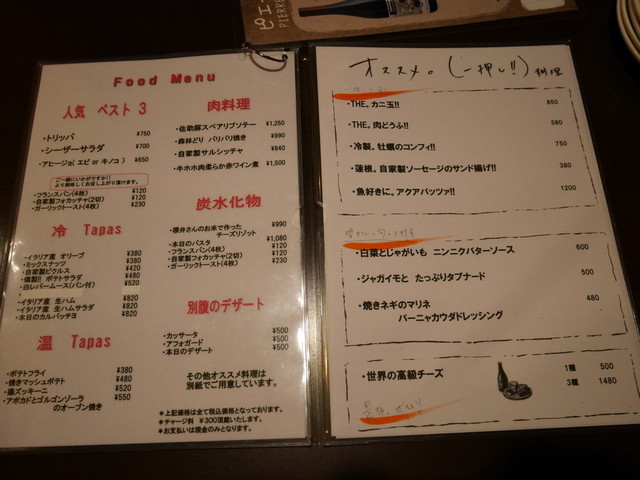 ピエ
PIERR
Food Menu
人気 ベスト 3
・トリッパ ¥750
・シーザーサラダ ¥700
・アヒージョ( エビ or キノコ ) ¥650
ご一緒にいかがですか!!
より美味しくお召し上がり頂けます。
・フランスパン(4枚) ¥120
・自家製フォカッチャ(2切) ¥120
・ガーリックトースト(4枚) ¥230
冷 Tapas
・イタリア産 オリーブ ¥380
・ミックスナッツ ¥380
・自家製ピクルス ¥420
・燻製!! ポテトサラダ ¥480
・白レバームース(パン付) ¥520
・イタリア産 生ハム ¥820
・イタリア産 生ハムサラダ ¥820
・本日のカルパッチョ ¥820
温 Tapas
・ポテトフライ ¥380
・焼きマッシュポテト ¥480
・揚ズッキーニ ¥520
・アボカドとゴルゴンゾーラ ¥550
のオーブン焼き
肉料理
・佐助豚スペアリブソテー ¥1,250
・森林どり パリパリ焼き ¥990
・自家製サルシッチャ ¥840
・牛ホホ肉柔らか赤ワイン煮 ¥1,500
炭水化物
・櫻井さんお米で作った ¥990
チーズリゾット
・本日のパスタ ¥1,080
・フランスパン(4枚) ¥120
・自家製フォカッチャ(2切) ¥120
・ガーリックトースト(4枚) ¥230
別腹のデザート
・カッサータ ¥500
・アフォガード ¥500
・本日のデザート ¥500
その他オススメ料理は
別紙でご用意しています。
＊上記価格は全て税込価格となっております。
＊チャージ料 ¥300頂戴いたします。
＊お支払いは現金のみとなります。
オススメ。(一押し!!) 料理
・THE。カニ玉!! 850
・THE。肉どうふ!! 580
・冷製。牡蠣のコンフィ!! 750
・蓮根。自家製ソーセージのサンド揚げ!! 380
・魚好きに。アクアパッツァ!! 1200
・白菜とじゃがいも ニンニクバターソース 600
・ジャガイモと たっぷりタプナード 500
・焼きネギのマリネ 480
バーニャカウダドレッシング
・世界の高級チーズ 1種 500
3種 1480